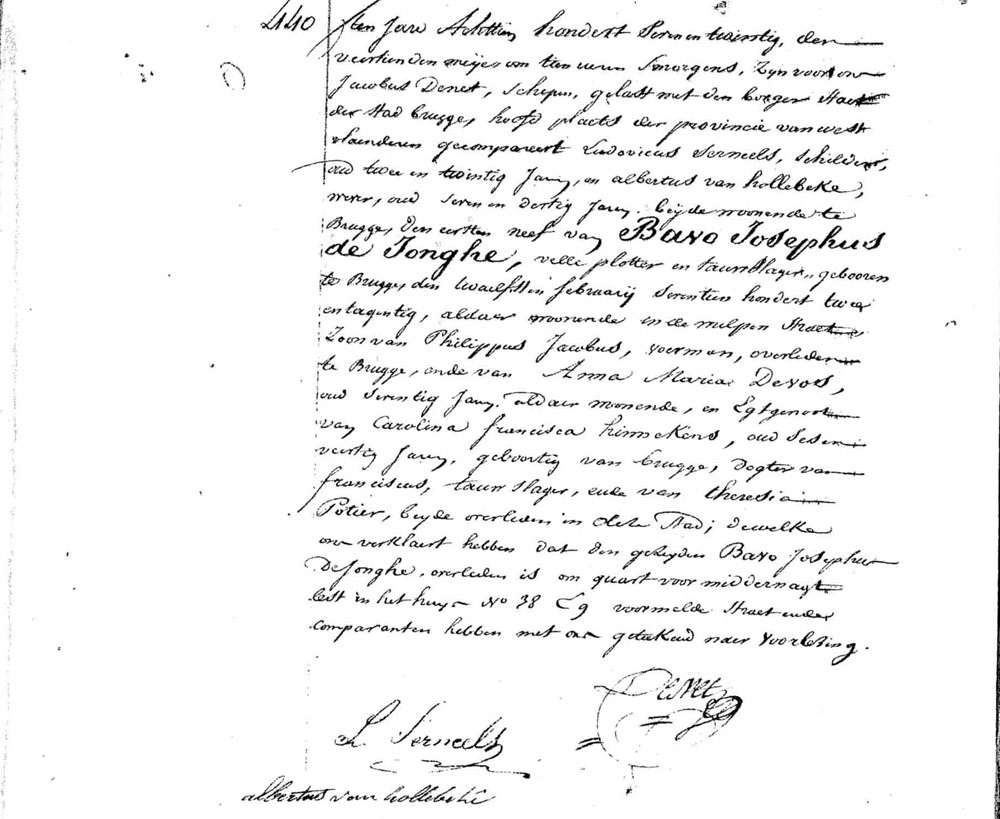 440
ten Jare Achttien hondert Seven en twintig, den
veertienden meije om tien uren Smorgens, Zyn voor ons
Jacobus Denet, Schepen, gelast met den borger Staet
der Stad brugge, hoofd plaets der provincie van west
vlaenderen gecompareert Ludovicus Serneels, Schilder,
oud twee en twintig Jaren, en albertus van hollebeke,
wever, oud Seven en dertig Jaren. beijde woonende te
Brugge, den eersten neef van Bavo Josephus
de Jonghe, velle plotter en tauw Slager, gebooren
te Brugge den twaelfsten februarij Seventien hondert twee
en tagentig, aldaer woonende in de Straet
Zoon van Philippus Jacobus, voerman, overleden
te Brugge, ende van Anna Maria Devos,
oud Seventig Jaren. aldaer woonende, en Egtgenoot
van Carolina francisca hinnekens, oud Sesen
veertig Jaren, geboortig van brugge, dogter van
franciscus, tauw Slager, ende van theresia
Potier, beijde overleden in dese Stad; dewelke
ons verklaert hebben dat den gezeyden Bavo Josephus
De Jonghe, overleden is om quart voor middernagt
lest in het huys No 38 E9 voormelde Straet ende
comparanten hebben met ons geteekend naer Voorlezing.
DeNet
L Serneels
albertus van hollebeke